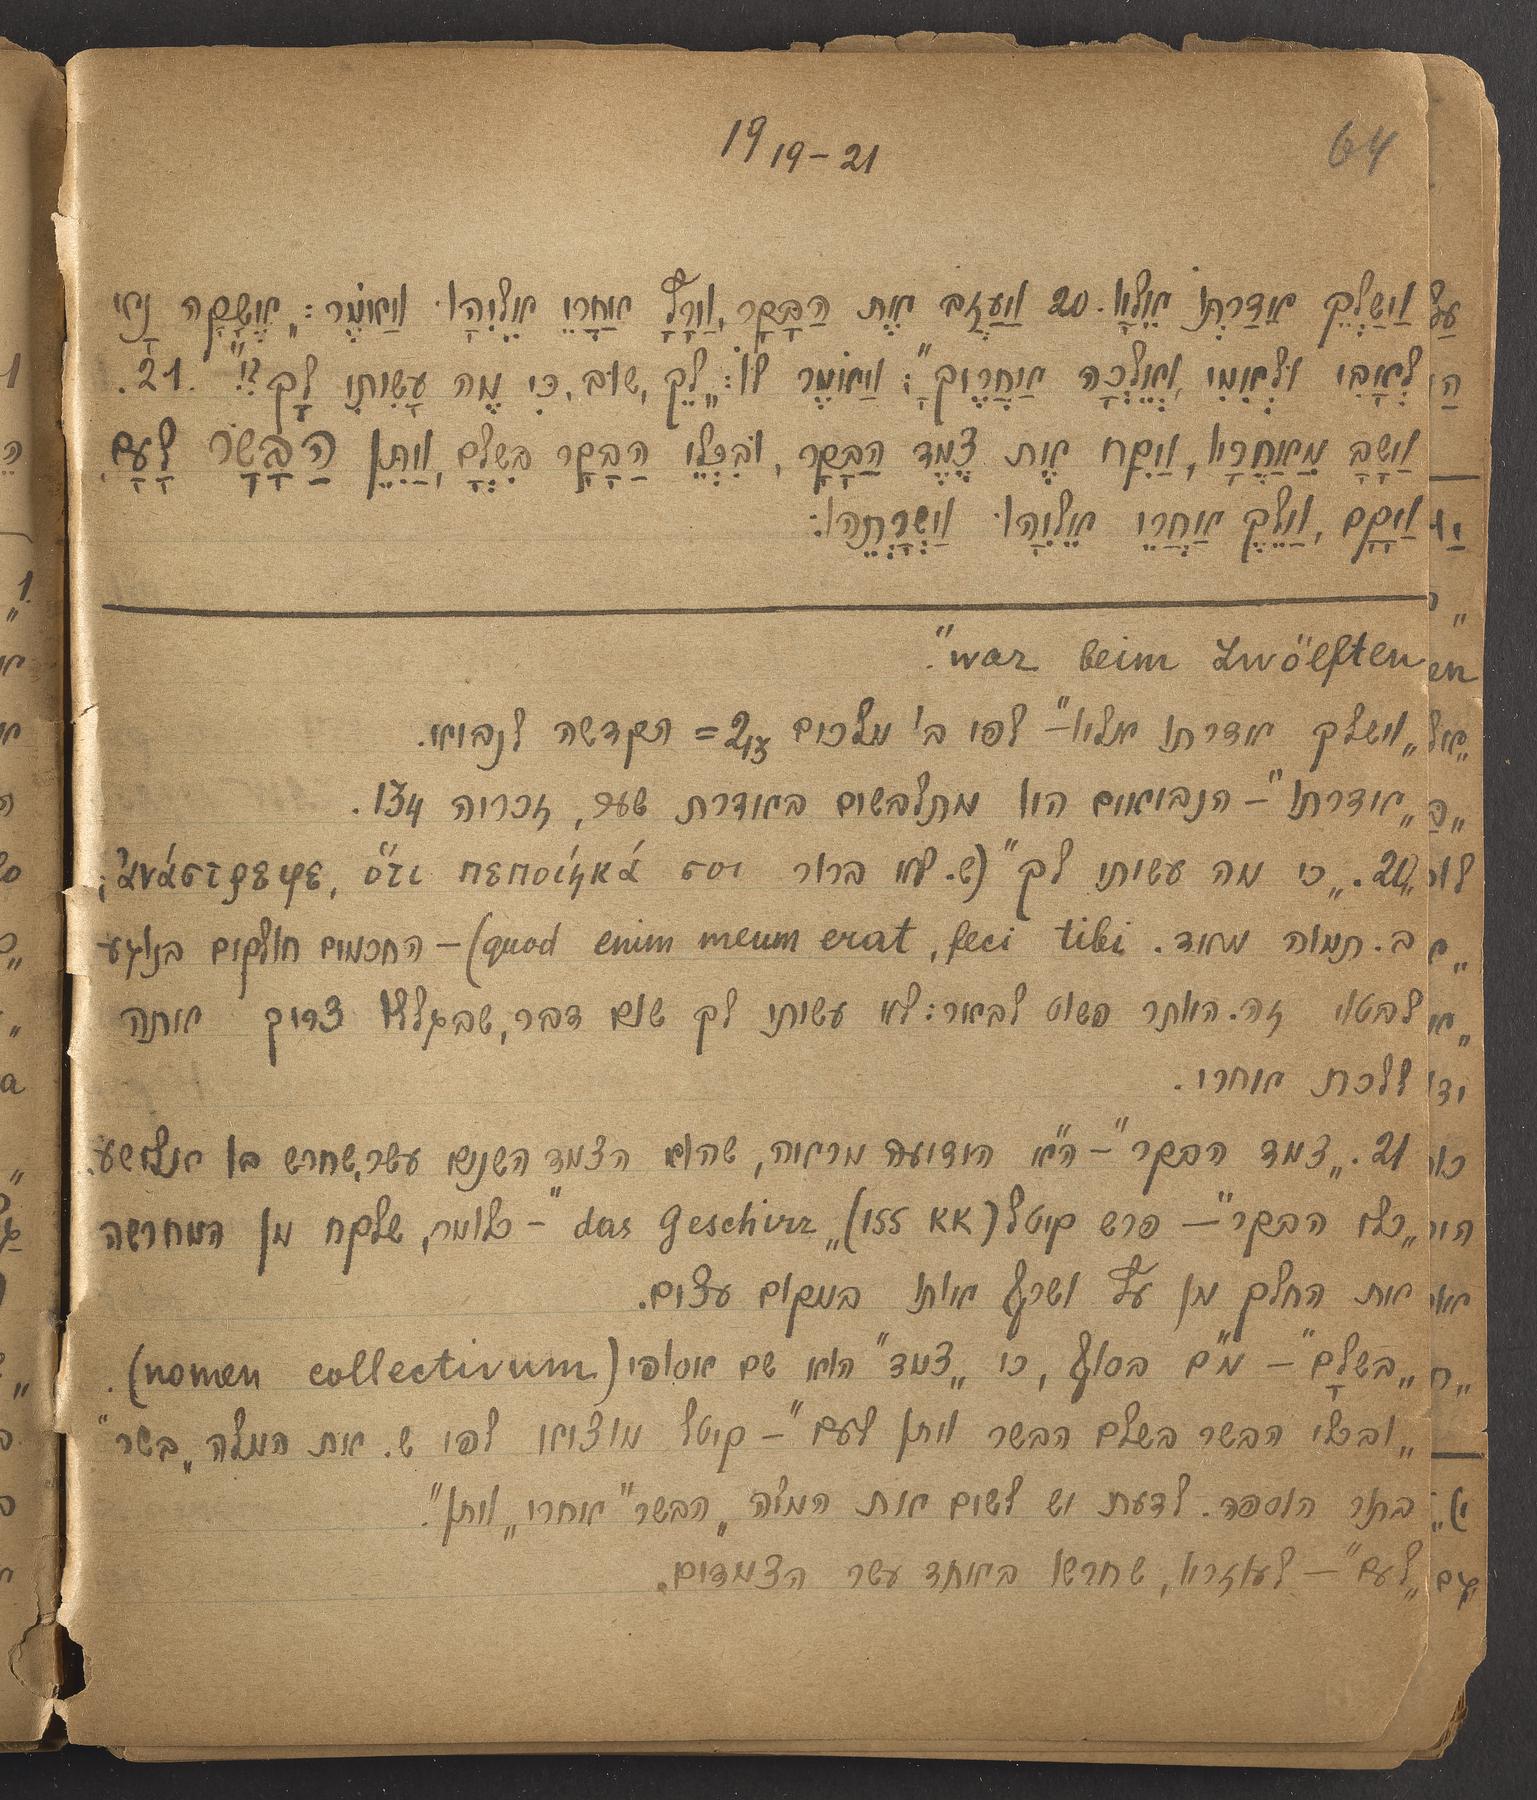 64
19 19-21
וַיַּשְׁלֵךְ אַדַּרְתּוֹ אֵלָיו. 20 וַיַּעֲזֹב אֶת הַבָּקָר, וַיָּרָץ אַחֲרֵי אֵלִיָּהוּ וַיֹּאמֶר: „אֶשֲּׁקָה נָּא
לְאָבִי וּלְאִמִּי, וְאֵלְכָה אַחֲרֶיךָ"; וַיֹּאמֶר לוֹ: „לֵךְ, שׁוּב, כִּי מֶה עָשִׂיתִי לָךְ?!" 21.
וַיָּשָׁב מֵאַחֲרָיו, וַיִּקַּח אֶת צֶמֶד הַבָּקָר, וּבִכְלֵי הַבָּקָר בִּשְּׁלָם, וַיִּתֵּן הַבָּשָׂר לָעָם,
וַיָּקָם, וַיֵּלֶךְ אַחֲרֵי אֵלִיָּהוּ וַיְשָׁרְתֵהוּ:
war beim Zwölften".
„וישלך אדרתו אליו" – לפי ב' מלכים 2 13 = הקדשה לנביא.
„אדרתו" – הנביאים היו מתלבשים באדרת שער, זכריה 13 4.
20. „כי מה עשיתי לך" (ש. לא ברור ἀνάστρεφε, ὅτι πεποίηκά σοι;
ב. תמוה מאד. quod enim meum erat, feci tibi) – החכמים חולקים בנוגע
לבטוי זה. היותר פשוט לבאר: לא עשיתי לך שום דבר, שבגללו צריך אתה
ללכת אחרי.
21. „צמד הבקר" – ה"א הידועה מראה, שהוא הצמד השנים עשר, שחרש בו אלישע.
„כלי הבקר" – פרש קיטל (KK 155) „das Geschirr" – כלומר, שלקח מן המחרשה
את החלק מן עץ ושרף אותו במקום עצים.
„בשלָם" – מ"ם בסוף, כי „צמד" הוא שם אסופי (nomen collectivum).
„ובכלי הבשר בשלם הבשר ויתן לעם" – קיטל מוציא לפי ש. את המלה „בשר"
בתור הוספה. לדעתי יש לשים את המלה „הבשר" אחרי „ויתן".
„לעם" – לעוזריו, שחרשו באחד עשר הצמדים.